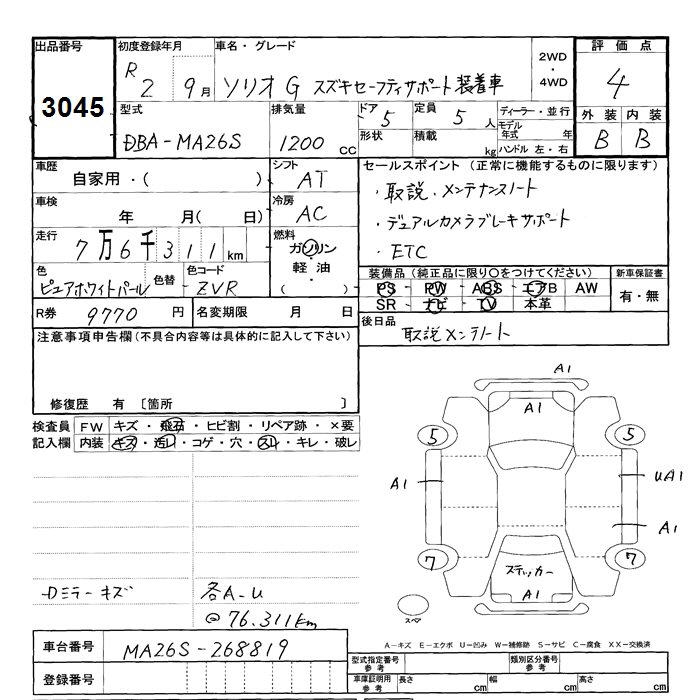 出品番号 初度登録年月 車名・グレード 2WD・4WD 評価点
3045 R 2 9月 ソリオ G スズキセーフティサポート装着車 4
型式 排気量 ドア 5 定員 5人 ディーラー・並行 外装 内装
DBA-MA26S 1200 cc 形状 積載 kg モデル年式 年 ハンドル 左・右 B B
車歴 シフト セールスポイント (正常に機能するものに限ります)
自家用・( ) AT ・取説、メンテナンスノート
車検 年 月( 日) 冷房 AC ・デュアルカメラブレーキサポート
走行 7万6千311km 燃料 ガソリン・軽油 ( ) ・ETC
色 色替 色コード 装備品 (純正品に限り○をつけてください) 新車保証書
ピュアホワイトパール ZVR PS PW ABS エアB AW 有・無
SR ナビ TV 本革
R券 9770 円 名変期限 月 日 後日品
取説メンテノート
注意事項申告欄 (不具合内容等は具体的に記入して下さい)
修復歴 有 〔箇所 〕
検査員 FW キズ・飛石・ヒビ割・リペア跡・×要
記入欄 内装 キズ・汚レ・コゲ・穴・スレ・キレ・破レ
A1
A1
5 5
A1 UA1
A1
7 7
ステッカー
A1
スペア
Dミラーキズ 各A-U
@76.311km
A-キズ E-エクボ U-凹み W-補修跡 S-サビ C-腐食 XX-交換済
車台番号 MA26S-268819
型式指定番号 参考 類別区分番号 参考
登録番号 車庫証明用 参考 長さ cm 幅 cm 高さ cm